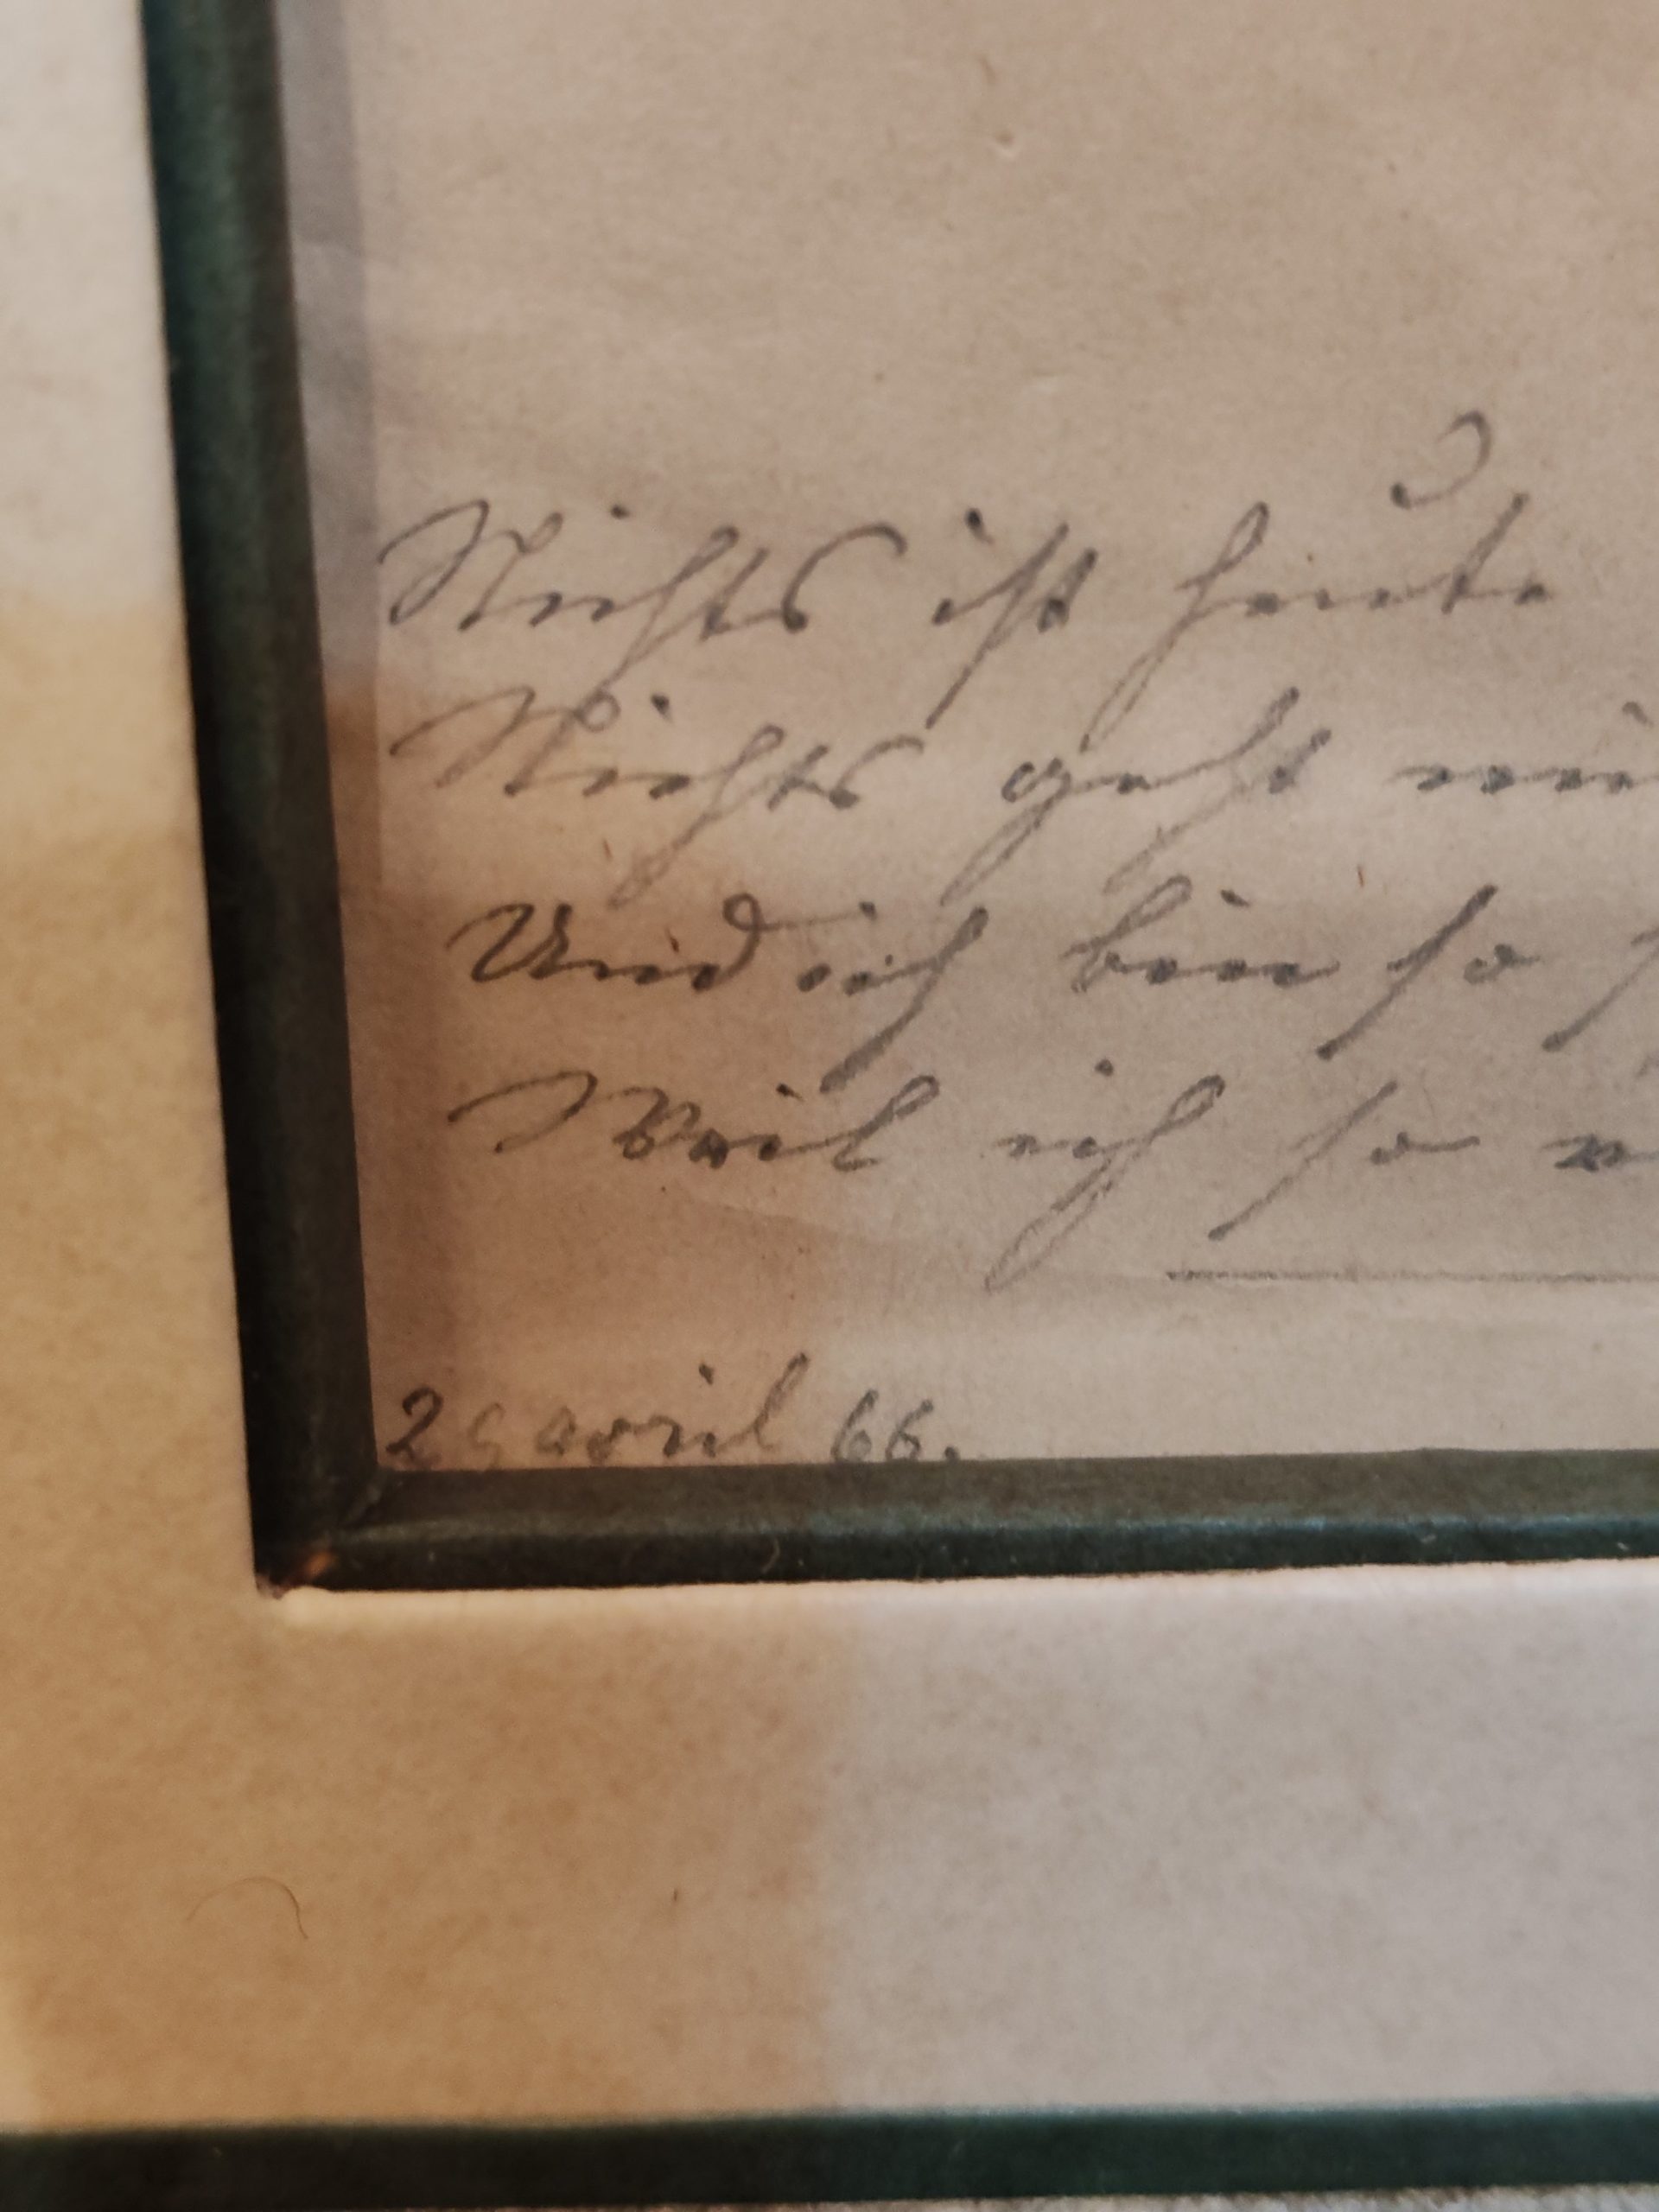 Nichts ist heute
Nichts geht mir
Und ich bin so
Weil ich so
29 april 66.